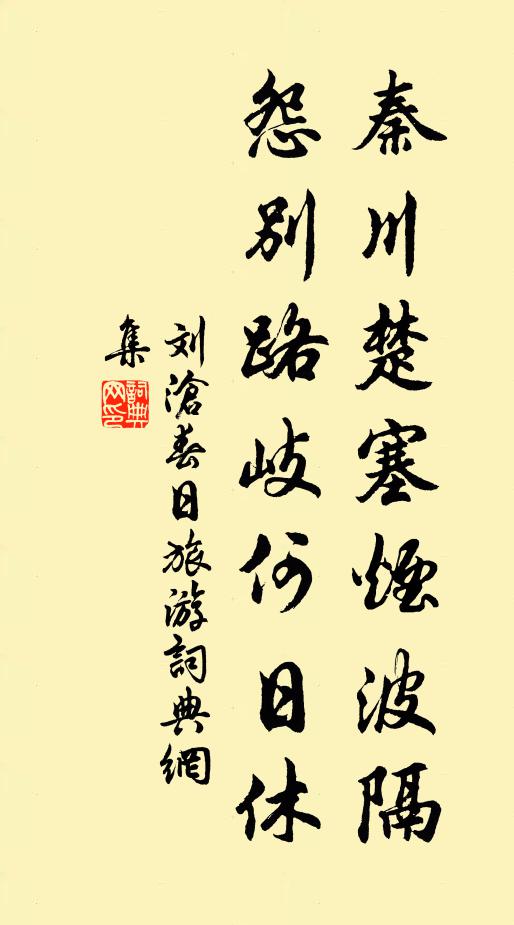 秦川楚塞煙波隔
怨别路岐何日休
刘滄春日旅游詞典網
集
詞典
网印